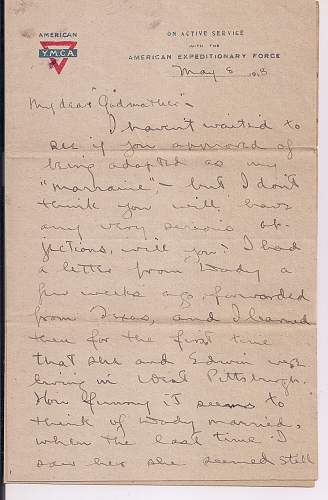 AMERICAN
Y.M.C.A.
ON ACTIVE SERVICE
WITH THE
AMERICAN EXPEDITIONARY FORCE
May 8 1918
My dear "Godmother"-
I haven't waited to
see if you approved of
being adopted as my
"marraine", - but I don't
think you will have
any very serious ob-
jections, will you? I had
a letter from Dody a
few weeks ago, forwarded
from Texas, and I learned
then for the first time
that she and Edwin were
living in West Pittsburgh.
How funny it seems to
think of Dody married,
when the last time I
saw her she seemed still